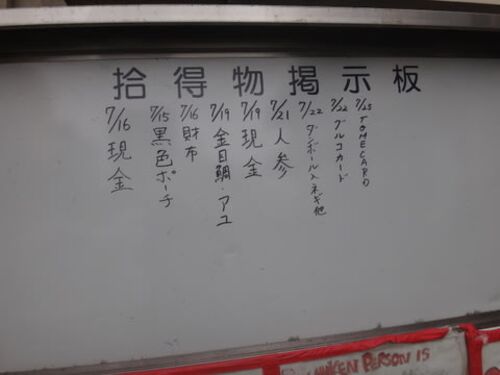 拾得物掲示板
7/25 TOMECARD
7/22 グルコカード
7/22 ダンボール入ネギ他
7/21 人参
7/19 現金
7/19 金目鯛・アユ
7/16 財布
7/15 黒色ポーチ
7/16 現金
PERSON IS